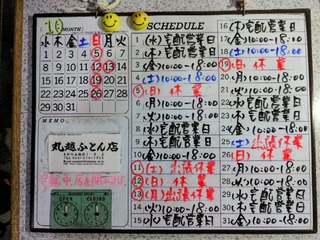 10 MONTH
水 木 金 土 日 月 火
1 2 3 4 5 6 7
8 9 10 11 12 13 14
15 16 17 18 19 20 21
22 23 24 25 26 27 28
29 30 31
MEMO
丸越ふとん店
OPEN CLOSED
SCHEDULE
1 (水) 宅配営業日
2 (木) 宅配営業日
3 (金) 10:00-18:00
4 (土) 10:00-18:00
5 (日) 休業
6 (月) 10:00-18:00
7 (火) 10:00-18:00
8 (水) 宅配営業日
9 (木) 宅配営業日
10 (金) 10:00-18:00
11 (土) 出張休業
12 (日) 休業
13 (月) 出張休業
14 (火) 10:00-18:00
15 (水) 宅配営業日
16 (木) 宅配営業日
17 (金) 10:00-18:00
18 (土) 10:00-18:00
19 (日) 休業
20 (月) 10:00-18:00
21 (火) 10:00-18:00
22 (水) 宅配営業日
23 (木) 宅配営業日
24 (金) 10:00-18:00
25 (土) 出張休業
26 (日) 休業
27 (月) 10:00-18:00
28 (火) 10:00-18:00
29 (水) 宅配営業日
30 (木) 宅配営業日
31 (金) 10:00-18:00